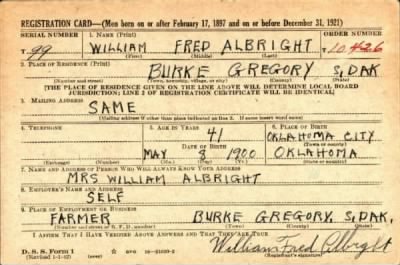 REGISTRATION CARD—(Men born on or after February 17, 1897 and on or before December 31, 1921)
SERIAL NUMBER 1. NAME (Print) ORDER NUMBER
T 99 WILLIAM FRED ALBRIGHT T 10,426
(First) (Middle) (Last)
2. PLACE OF RESIDENCE (Print)
BURKE GREGORY S, DAK
(Number and street) (Town, township, village, or city) (County) (State)
[THE PLACE OF RESIDENCE GIVEN ON THE LINE ABOVE WILL DETERMINE LOCAL BOARD
JURISDICTION; LINE 2 OF REGISTRATION CERTIFICATE WILL BE IDENTICAL]
3. MAILING ADDRESS
SAME
[Mailing address if other than place indicated on line 2. If same insert word same]
4. TELEPHONE 5. AGE IN YEARS 6. PLACE OF BIRTH
41 OKLAHOMA CITY
DATE OF BIRTH (Town or county)
MAY 8 1900 OKLAHOMA
(Exchange) (Number) (Mo.) (Day) (Yr.) (State or country)
7. NAME AND ADDRESS OF PERSON WHO WILL ALWAYS KNOW YOUR ADDRESS
MRS WILLIAM ALBRIGHT
8. EMPLOYER'S NAME AND ADDRESS
SELF
9. PLACE OF EMPLOYMENT OR BUSINESS
FARMER BURKE GREGORY S, DAK,
(Number and street or R. F. D. number) (Town) (County) (State)
I AFFIRM THAT I HAVE VERIFIED ABOVE ANSWERS AND THAT THEY ARE TRUE.
D. S. S. Form 1 William Fred Albright
(Registrant's signature)